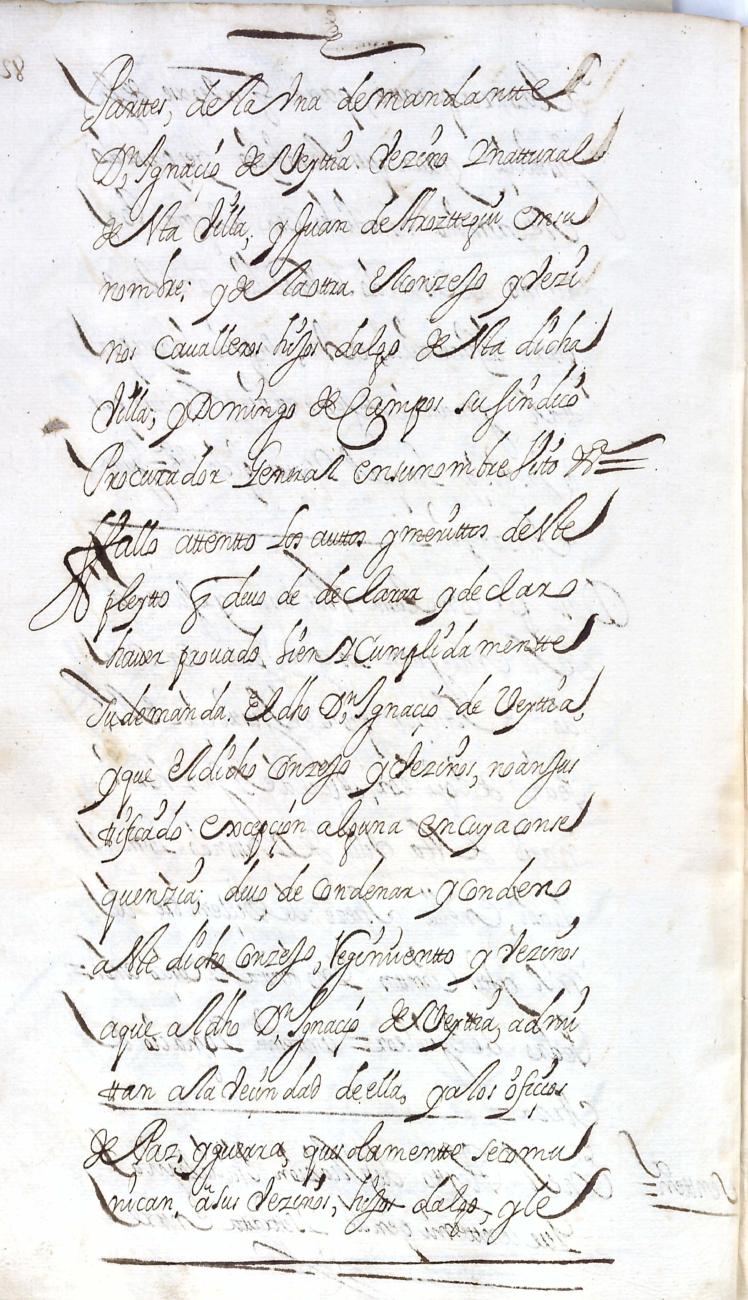 Parttes, de la Una demandantte
Dn Ignacio de Veyttia Vezino Y nattural
de esta Villa, y Juan de Arozttegui en su
nombre; y de la ottra el conzejo y vezi
nos Cavalleros hijos dalgo de esta dicha
Villa, y Domingo de Campos su sindico
Procurador General en su nombre visto &ª =
Fallo attentto los auttos y merittos de este
pleytto q devo de declarar y declaro
haver provado bien Y Cumplidamentte
su demanda. El dho Dn Ignacio de Veyttia,
y que el dicho Conzejo y Vezinos, no an jus
ttificado excepcion alguna en cuya conse
quenzia; devo de Condenar y condeno
a este dicho Conzejo, Regimientto y Vezinos
a que al dho Dn Ignacio de Veyttia, admi
ttan a la Vecindad de ella, y a los oficios
de Paz, y guerra, que solamentte se comu
nican, a sus Vezinos, hijos dalgo, y le